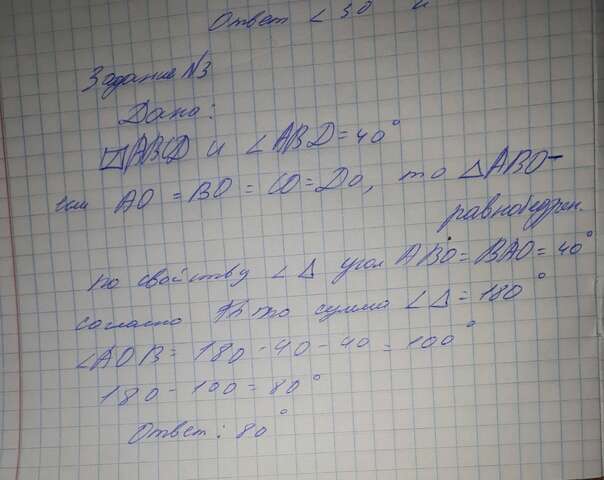 Ответ ∠ 30 и
Задание №3
Дано:
ABCD и ∠ABD = 40°
если AO = BO = CO = Do, то △ABO –
равнобедрен.
по свойству ∠△ угол ABO = BAO = 40°
согласно что сумма ∠△ = 180°
∠AOB = 180 - 40 - 40 = 100°
180 - 100 = 80°
Ответ: 80°